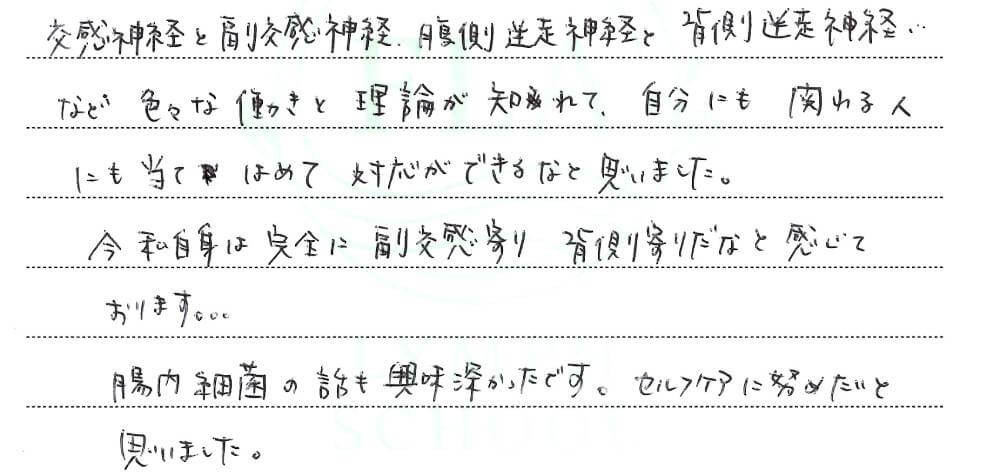 交感神経と副交感神経、腹側迷走神経と 背側迷走神経…
など 色々な働きと 理論が 知れて、自分にも 関わる人
にも当て はめて 対応ができるなと思いました。
今私自身は完全に副交感寄り 背側寄りだなと感じて
おります。。。
腸内細菌の話も興味深かったです。セルフケアに努めたいと
思いました。